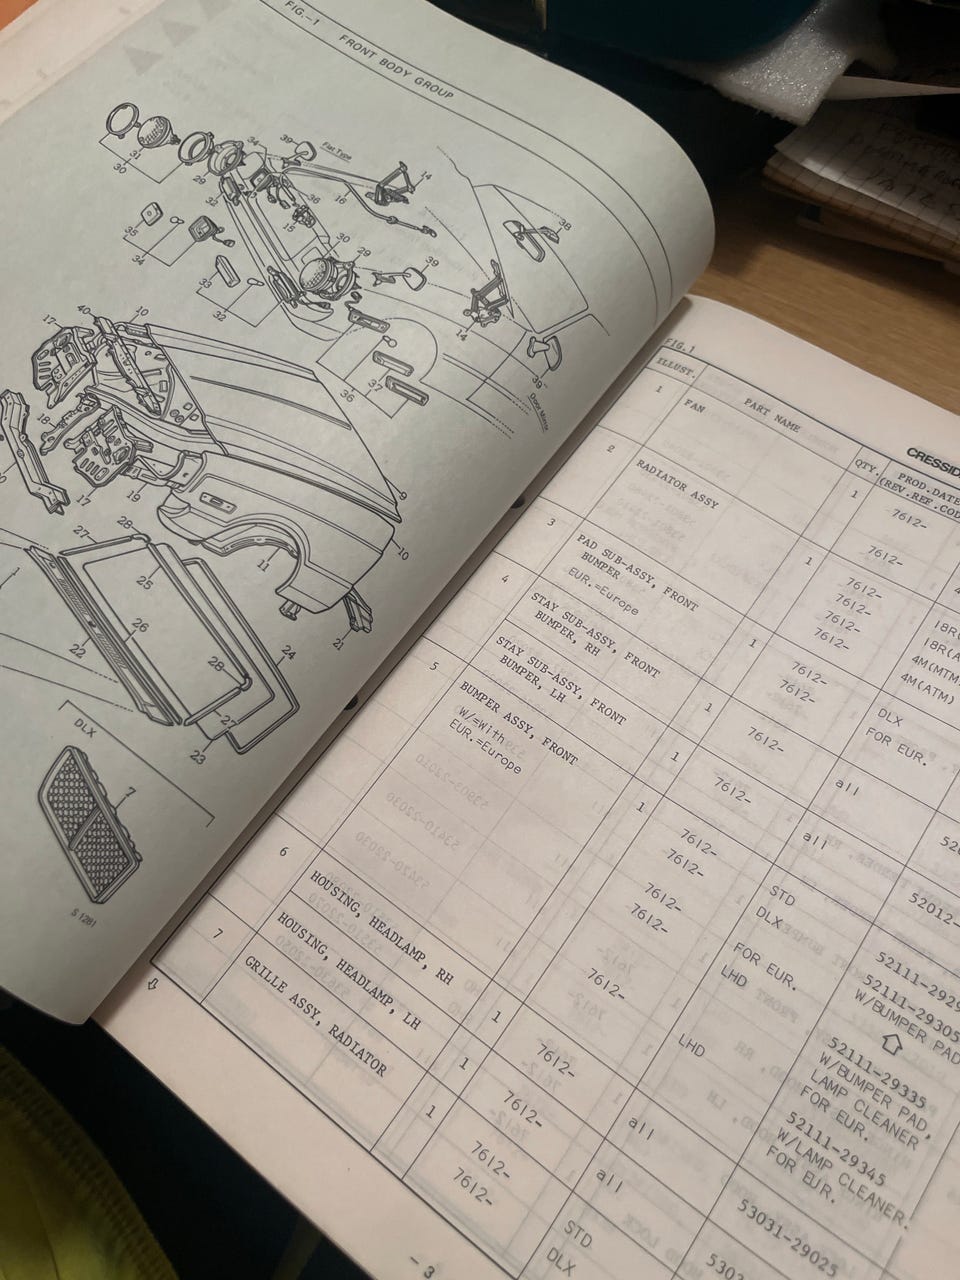 FIG.-1
FRONT BODY GROUP
31
30
29
34
39
Flat Type
14
36
16
15
35
34
33
32
30
29
39
38
14
39
Door Mirror
36
37
17
40
10
18
17
19
9
10
11
21
28
27
25
26
1
22
24
28
27
23
DLX
7
S 1281
FIG.1
ILLUST.
PART NAME
QTY.
PROD.DATE
(REV.REF.COD
CRESSID
1
FAN
1
7612-
7612-
2
RADIATOR ASSY
1
7612-
7612-
7612-
7612-
18R(
18R(A
4M(MTM
4M(ATM)
3
PAD SUB-ASSY, FRONT
BUMPER
EUR.=Europe
1
7612-
7612-
DLX
FOR EUR.
4
STAY SUB-ASSY, FRONT
BUMPER, RH
1
7612-
all
STAY SUB-ASSY, FRONT
BUMPER, LH
1
7612-
all
52012-
5
BUMPER ASSY, FRONT
W/=With
EUR.=Europe
1
7612-
7612-
7612-
7612-
7612-
STD
DLX
FOR EUR.
LHD
LHD
52111-2929
52111-29305
W/BUMPER PAD
52111-29335
W/BUMPER PAD,
LAMP CLEANER
FOR EUR.
52111-29345
W/LAMP CLEANER.
FOR EUR.
6
HOUSING, HEADLAMP, RH
1
7612-
all
53031-29025
HOUSING, HEADLAMP, LH
1
7612-
all
7
GRILLE ASSY, RADIATOR
1
7612-
7612-
STD
DLX
- 3